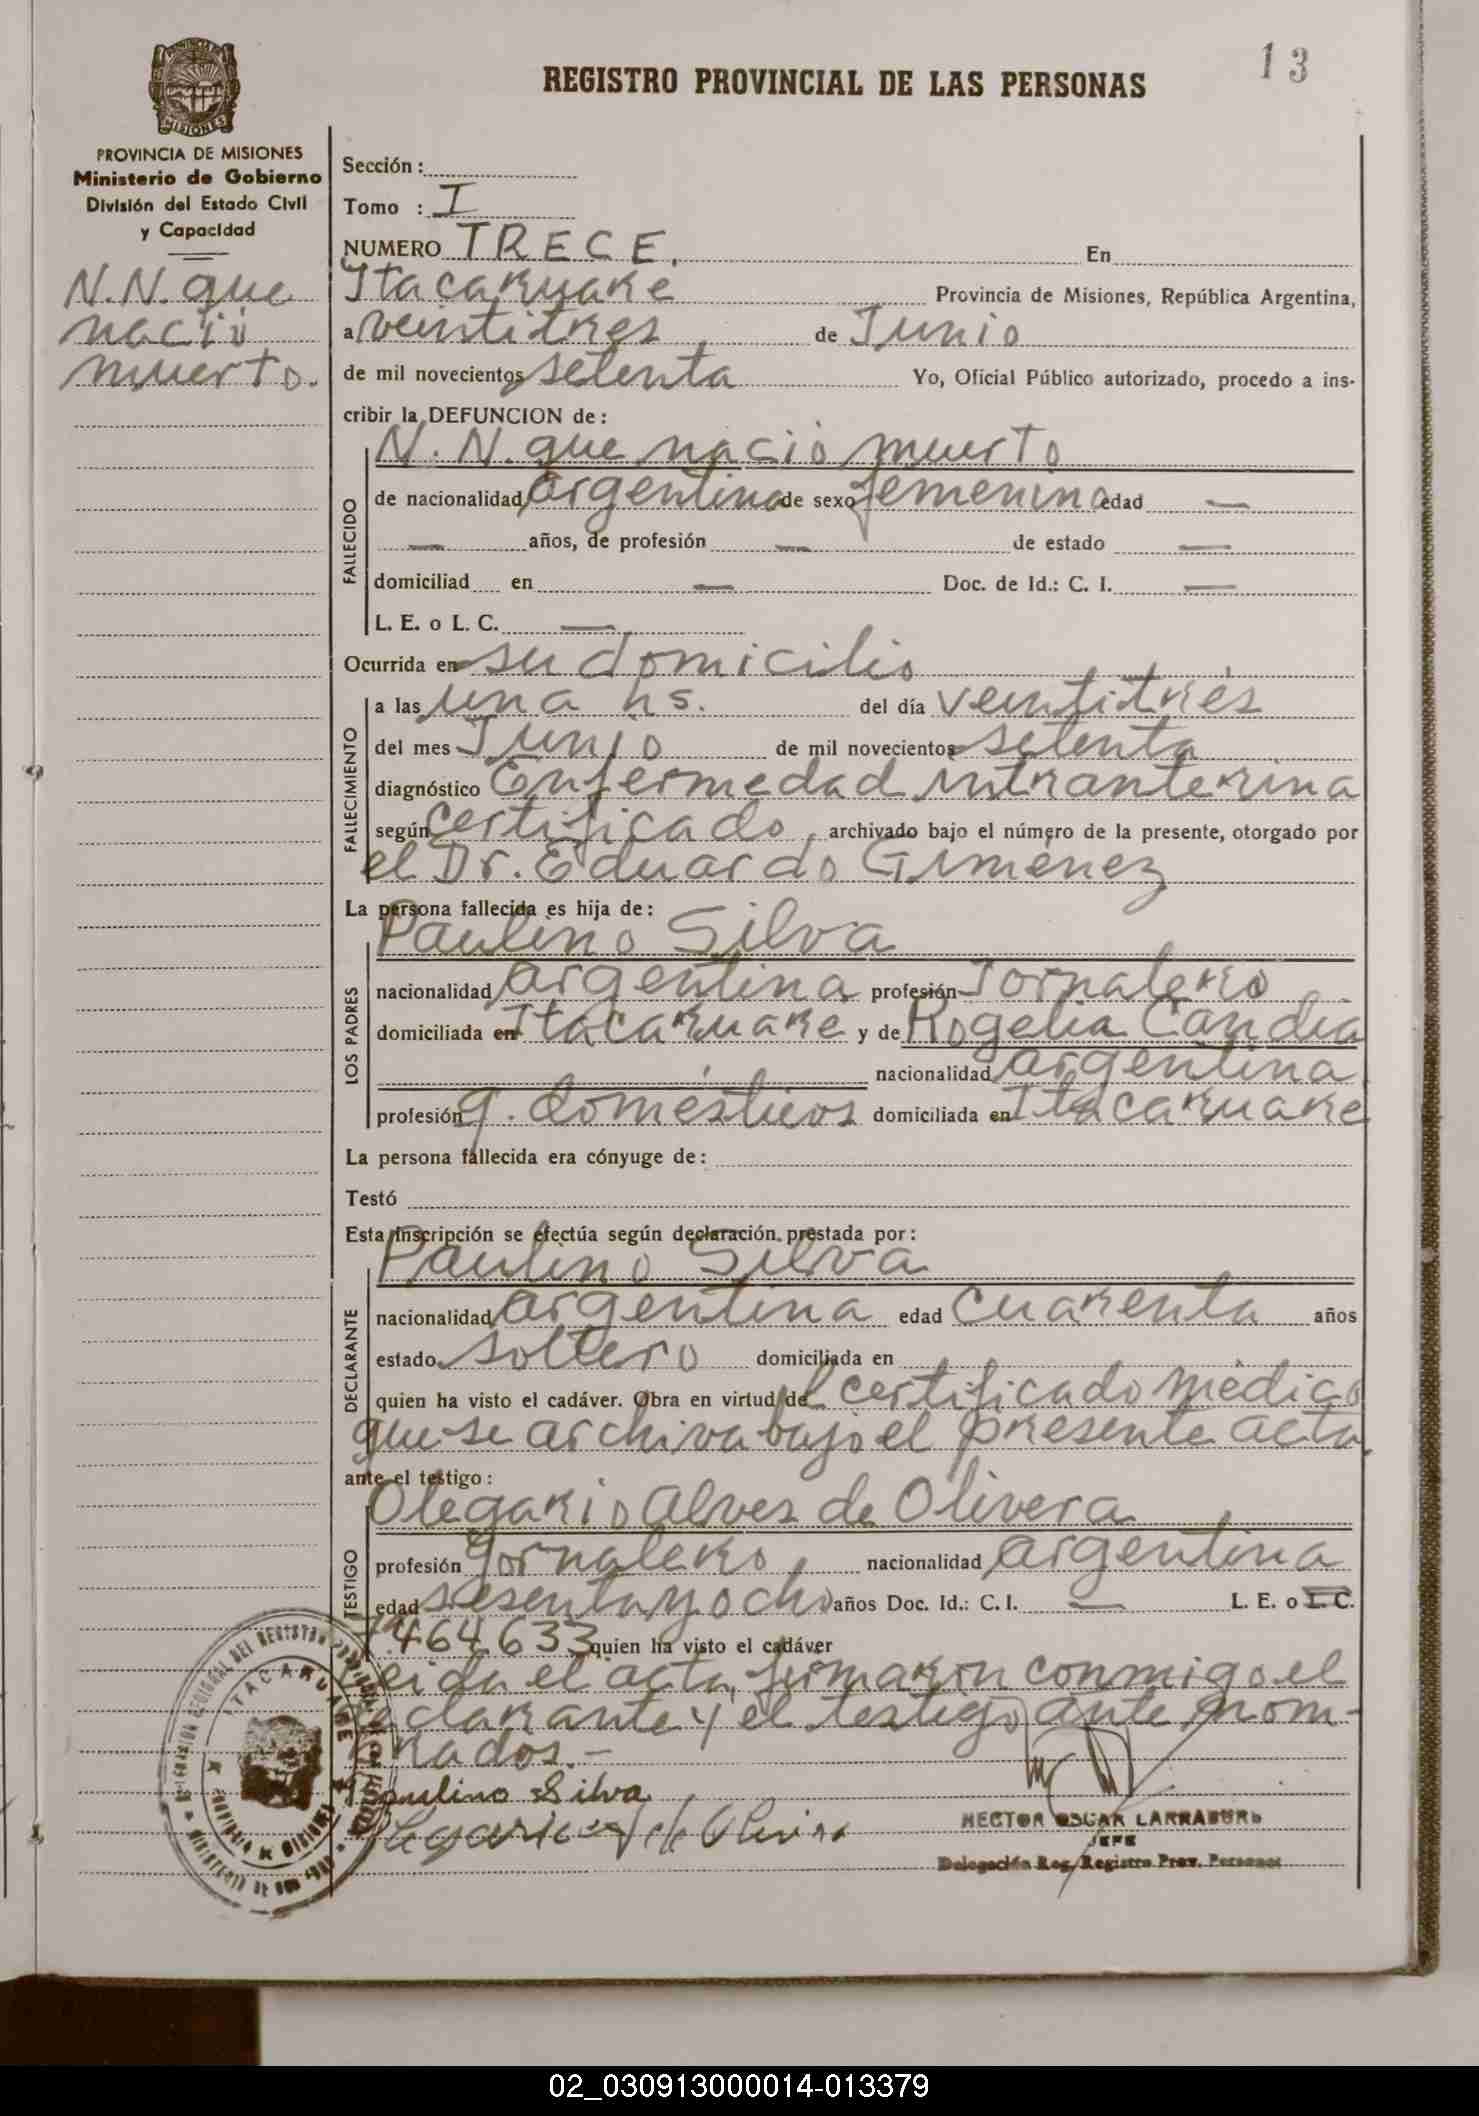 13
REGISTRO PROVINCIAL DE LAS PERSONAS
PROVINCIA DE MISIONES
Ministerio de Gobierno
División del Estado Civil
y Capacidad
N.N. que
nació
muerto.
Sección:
Tomo : I
NUMERO TRECE. En
Itacaruaré Provincia de Misiones, República Argentina,
a veintitres de Junio
de mil novecientos setenta Yo, Oficial Público autorizado, procedo a ins-
cribir la DEFUNCION de:
FALLECIDO
N. N. que nació muerto
de nacionalidad argentina de sexo femenino edad —
— años, de profesión — de estado —
domiciliad en — Doc. de Id.: C. I. —
L. E. o L. C. —
Ocurrida en su domicilio
FALLECIMIENTO
a las una hs. del día veintitrés
del mes Junio de mil novecientos setenta
diagnóstico Enfermedad intranterina
según certificado, archivado bajo el número de la presente, otorgado por
el Dr. Eduardo Gimenez
La persona fallecida es hija de:
LOS PADRES
Paulino Silva
nacionalidad argentina profesión Jornalero
domiciliada en Itacaruare y de Rogelia Candia
nacionalidad argentina
profesión q. domésticos domiciliada en Itacaruare
La persona fallecida era cónyuge de:
Testó
Esta inscripción se efectúa según declaración prestada por:
DECLARANTE
Paulino Silva
nacionalidad argentina edad cuarenta años
estado soltero domiciliada en
quien ha visto el cadáver. Obra en virtud del certificado médico
que se archiva bajo el presente acta.
ante el testigo:
TESTIGO
Olegario Alvez de Olivera
profesión Jornalero nacionalidad argentina
edad sesenta y ocho años Doc. Id.: C. I. — L. E. o L. C.
7.464.633 quien ha visto el cadáver
Leida el acta, firmaron conmigo el
declarante y el testigo ante nom-
rados.-
Paulino Silva
Olegario A de Olivera
HECTOR OSCAR LARRABURU
JEFE
Delegación Reg. Registro Prov. Personas
ITACARUARE
PROVINCIA DE MISIONES
02_030913000014-013379